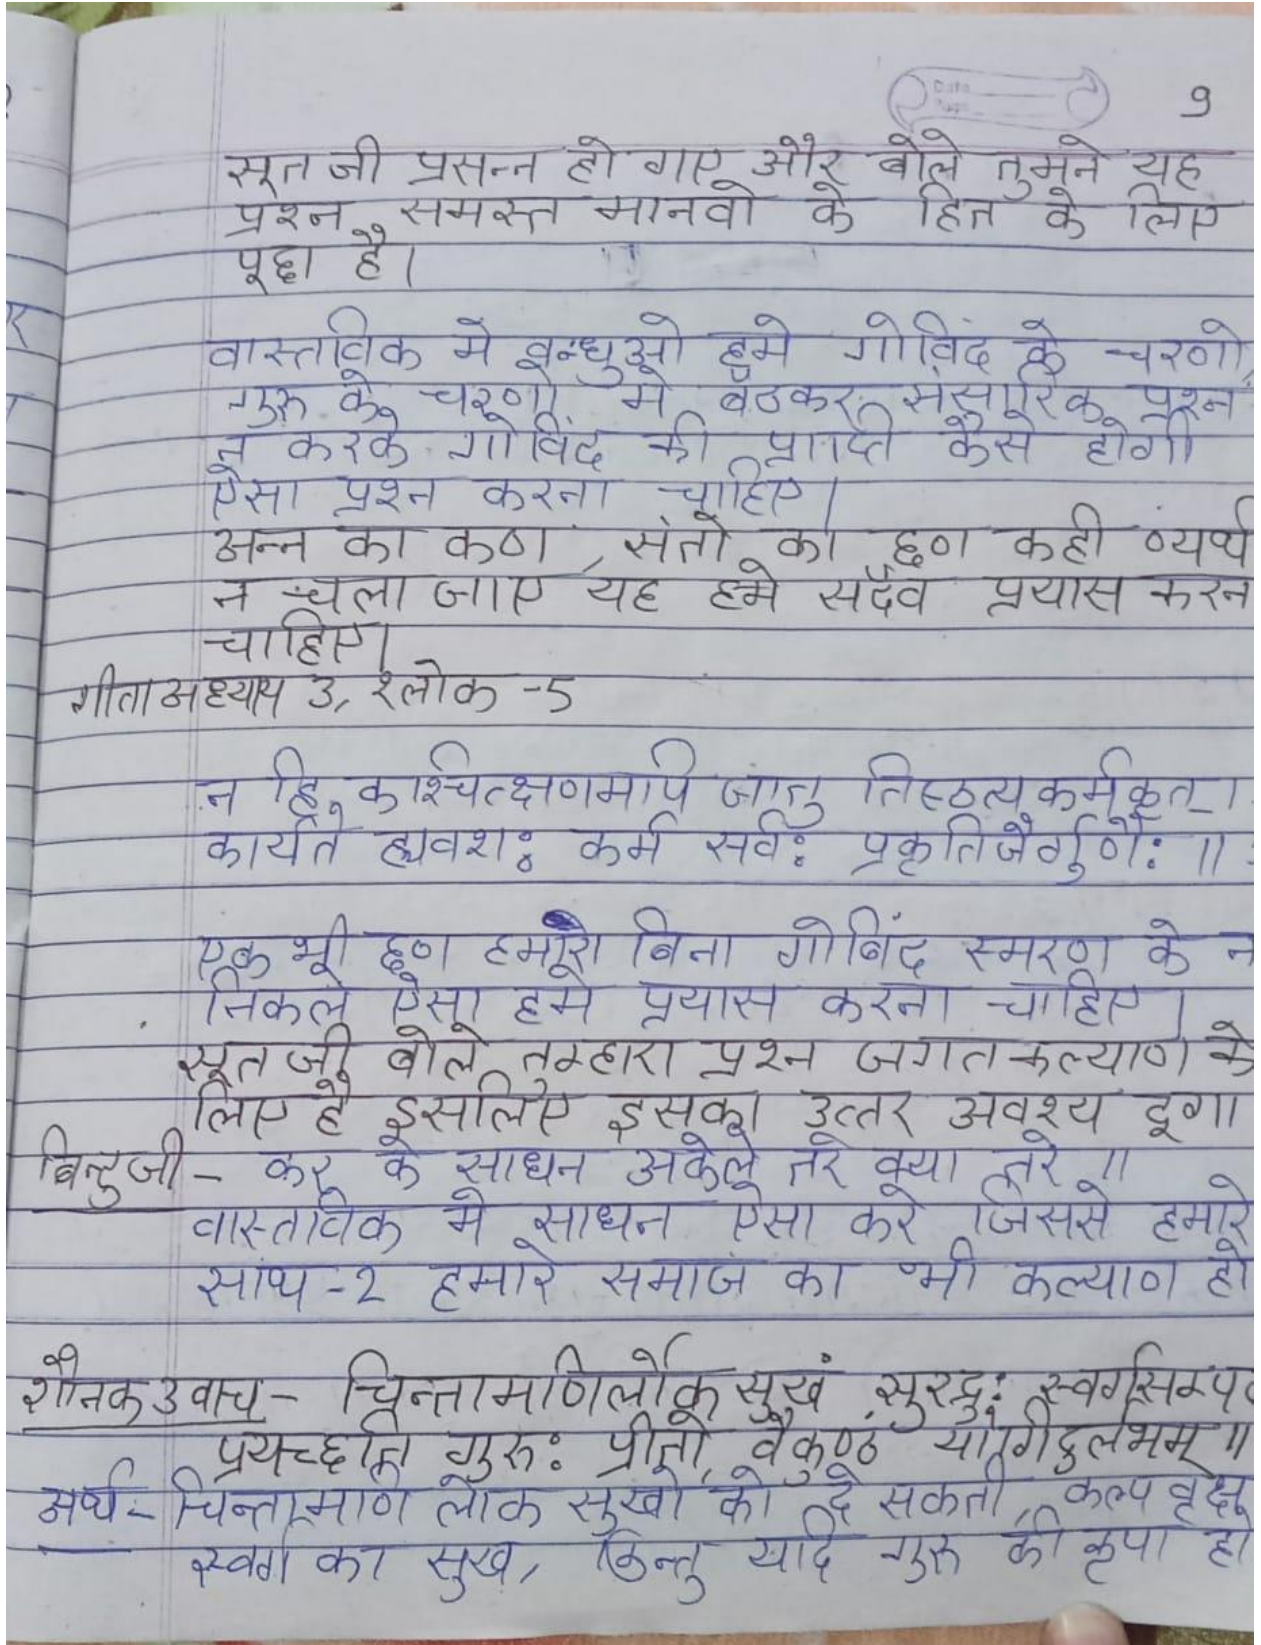 Date
Page
9
सूत जी प्रसन्न हो गए और बोले तुमने यह
प्रश्न समस्त मानवो के हित के लिए
पूछा है।
वास्तविक मे बन्धुओ हमे गोविंद के चरणो,
गुरु के चरणो मे बैठकर संसारिक प्रश्न
न करके गोविंद की प्राप्ति कैसे होगी
ऐसा प्रश्न करना चाहिए।
अन्न का कण, संतो का छण कही व्यर्थ
न चला जाए यह हमे सदैव प्रयास करन
चाहिए।
गीता अध्याय 3, श्लोक -5
न हि कश्चित्क्षणमपि जातु तिष्ठत्यकर्मकृत्।
कार्यते ह्यवशः कर्म सर्वः प्रकृतिजैर्गुणैः ॥
एक भी छण हमारो बिना गोबिंद स्मरण के न
निकले ऐसा हमे प्रयास करना चाहिए।
सूत जी बोले तुम्हारा प्रश्न जगत कल्याण के
लिए है इसलिए इसका उत्तर अवश्य दूगा
बिन्दुजी - कर के साधन अकेले तरे क्या तरे ॥
वास्तविक मे साधन ऐसा करे जिससे हमारे
साथ -2 हमारे समाज का भी कल्याण हो
शौनक उवाच - चिन्तामणिर्लोक सुखं सुरद्रुः स्वर्गसम्पद
प्रयच्छति गुरुः प्रीतो वैकुण्ठं योगिदुर्लभम् ॥
अर्थ - चिन्तामणि लोक सुखो को दे सकती, कल्प वृक्ष
स्वर्ग का सुख, किन्तु यदि गुरु की कृपा हो